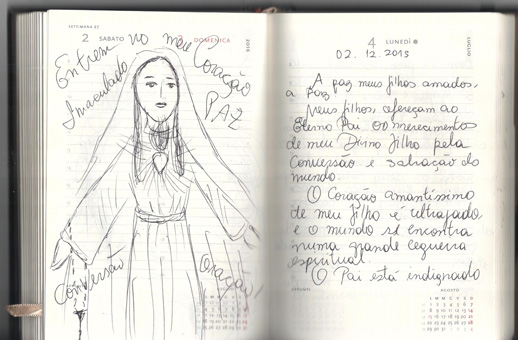 SETTIMANA 27
2 SABATO
3 DOMENICA
2016
Entrem no meu Coração
Imaculado
PAZ
Conversão
Oração
4 LUNEDÌ
LUGLIO
02.12.2015
A paz meus filhos amados,
a paz
Meus filhos, ofereçam ao
Eterno Pai os merecimentos
de meu Divino Filho pela
Conversão e salvação do
mundo.
O Coração amantíssimo
de meu Filho é ultrajado
e o mundo se encontra
numa grande cegueira
espiritual.
O Pai está indignado
APPUNTI
AGOSTO
L M M G V S D